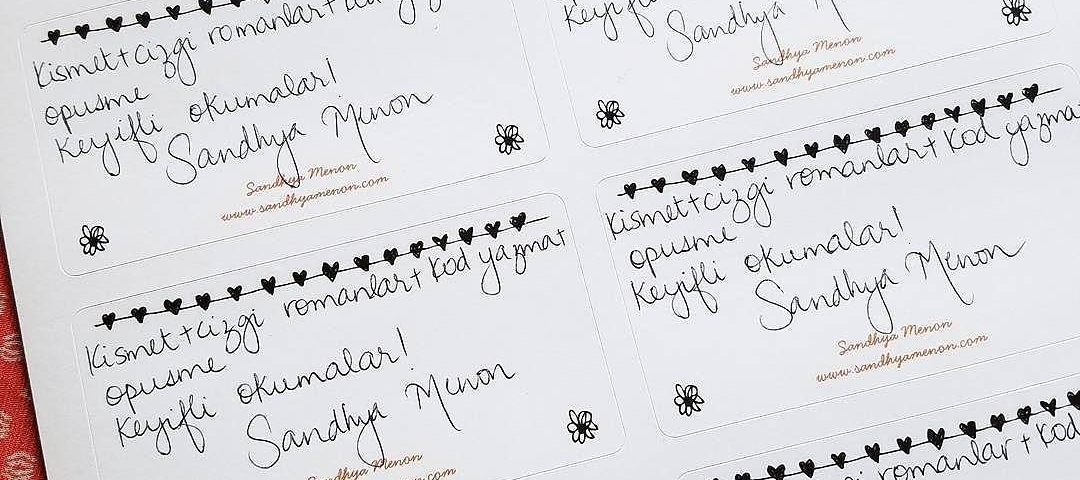 Kismet+cizgi romanlar+
opusme
Keyifli okumalar!
Sandhya Menon
Sandhya Menon
www.sandhyamenon.com
Keyifli
Sandhya M
Sandhya Menon
www.sandhyamenon.com
Kismet+cizgi romanlar+ kod yazma+
opusme
Keyifli okumalar!
Sandhya Menon
Sandhya Menon
Kismet+cizgi romanlar+ kod yazma
opusme
Keyifli okumalar!
Sandhya Menon
Sandhya Menon
www.sandhyamenon.com
romanlar+ kod